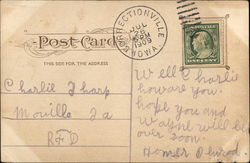 CORRECTIONVILLE
JUL
1909
IOWA
Post Card
THIS SIDE FOR THE ADDRESS
Charlie Tharp
Moville Ia
R F D
Well Charlie
how are you.
hope you and
Wayne will be
over soon.
Homer